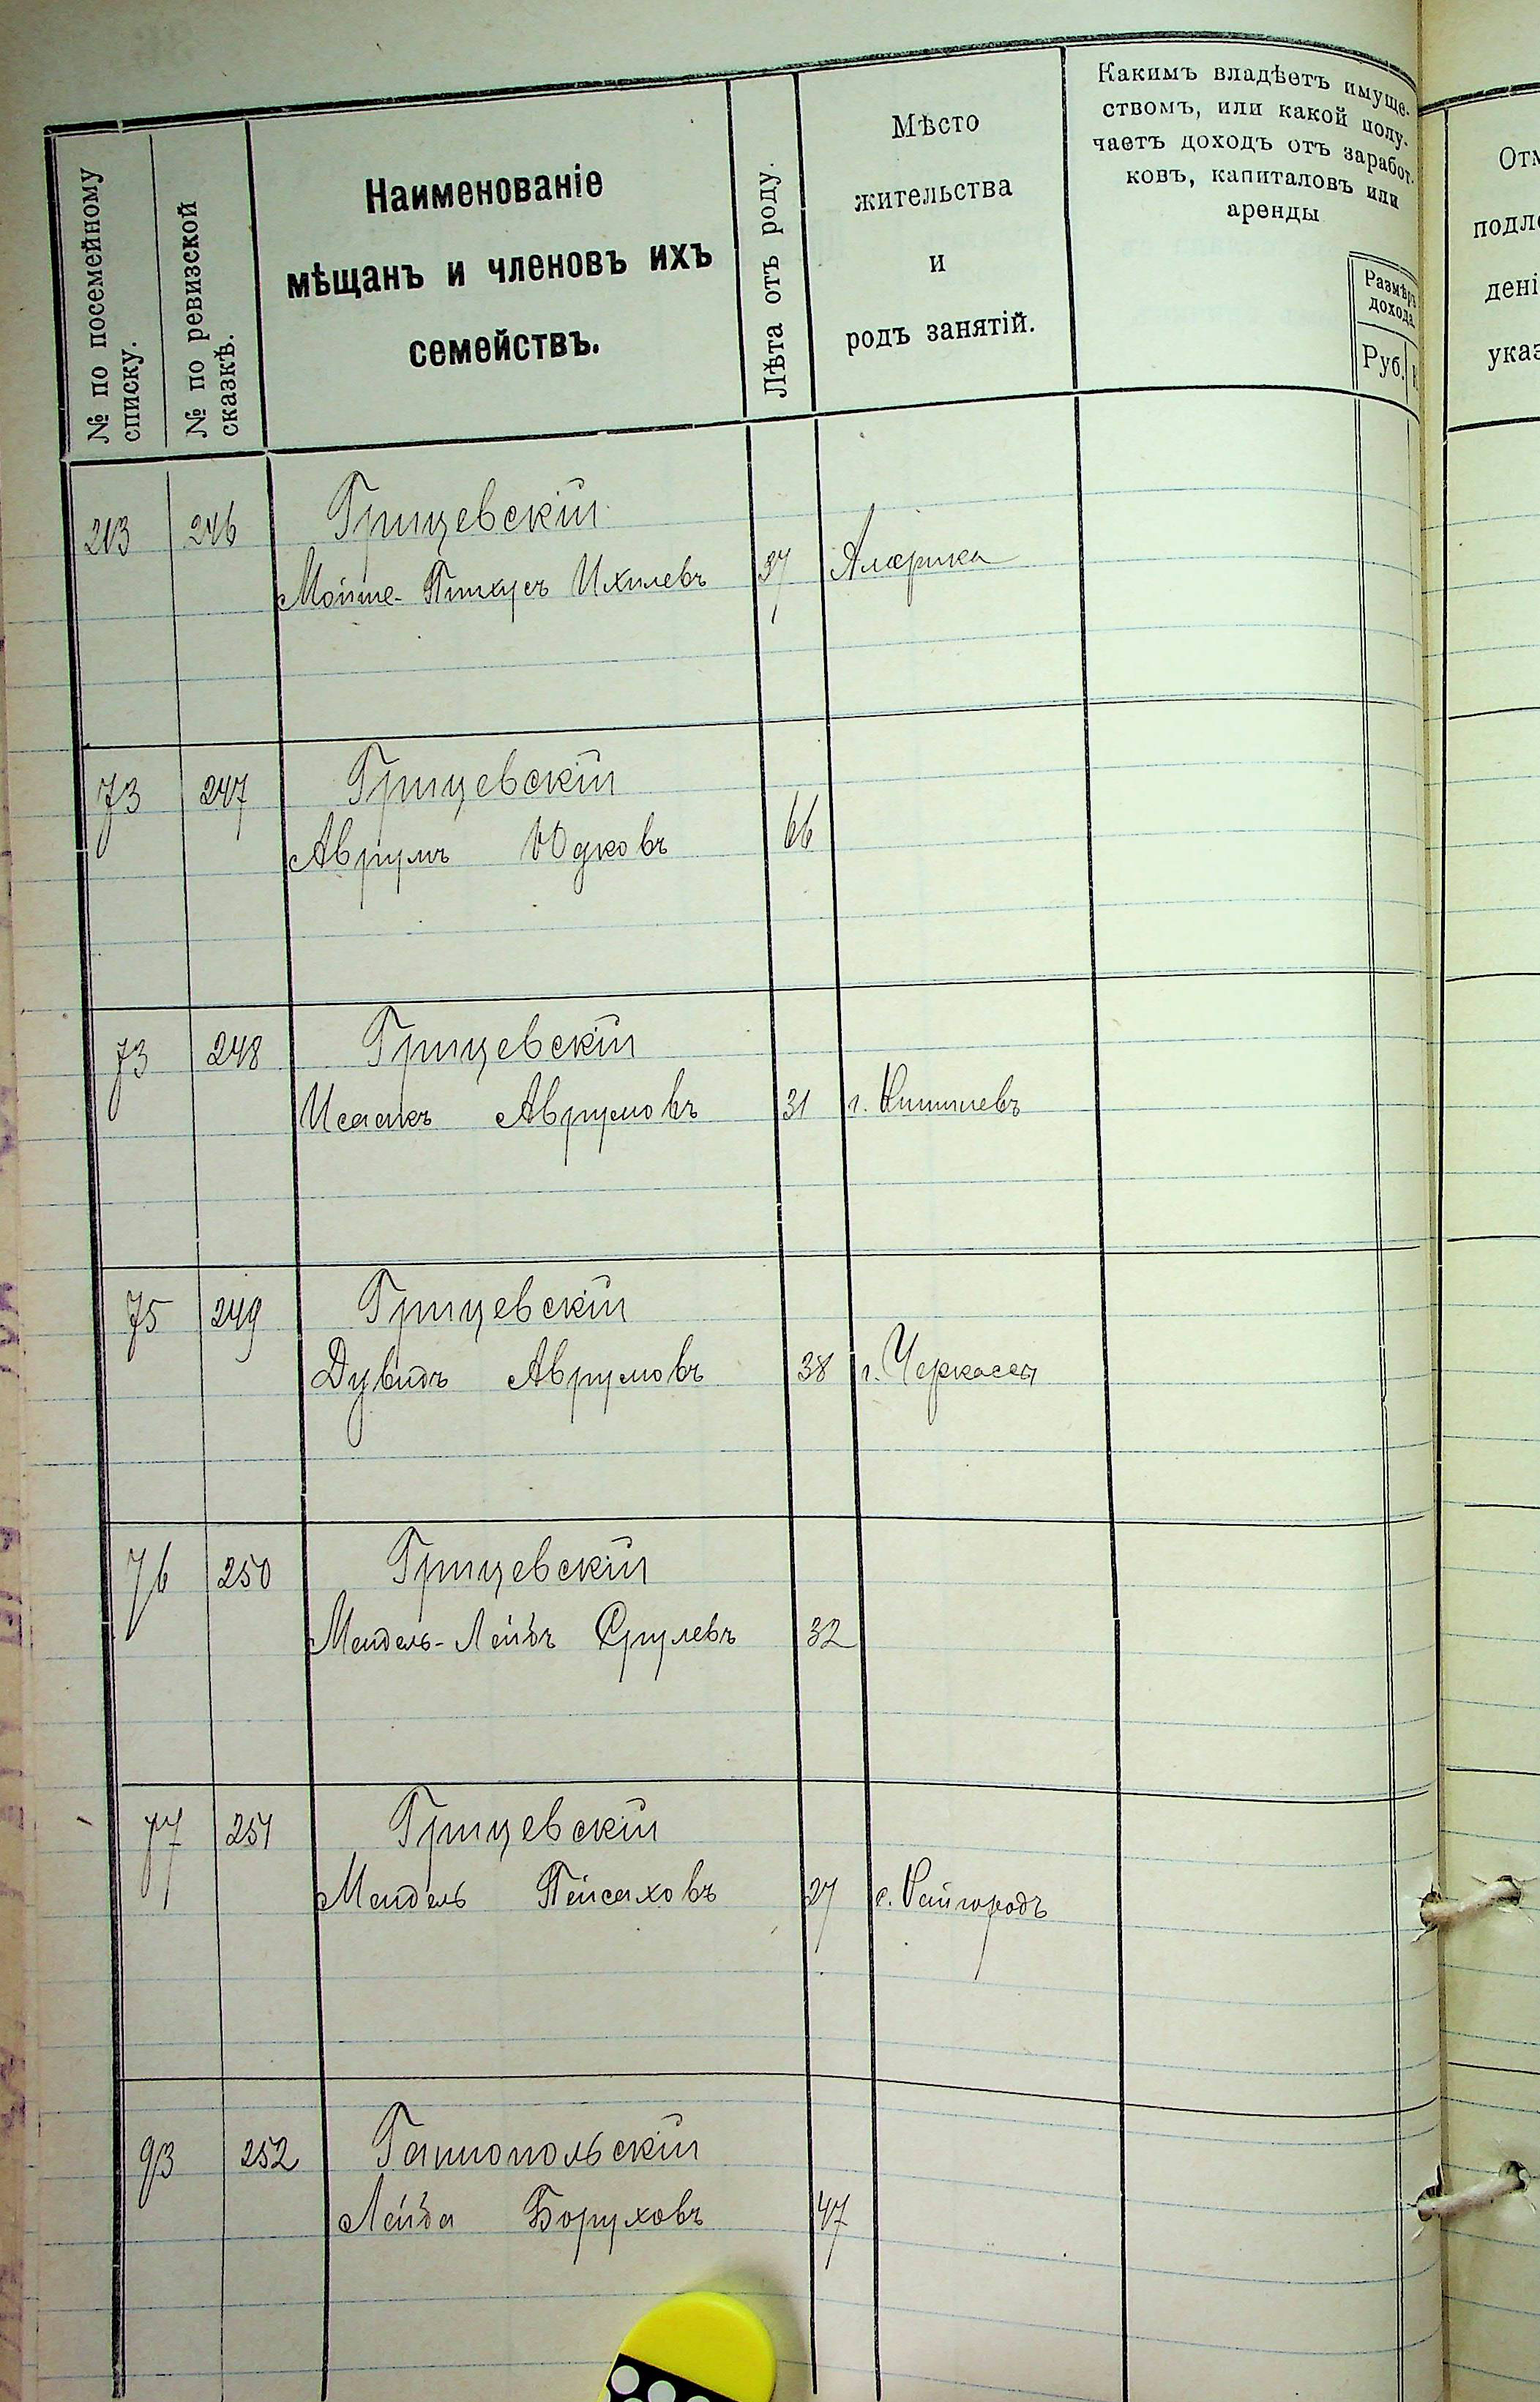 № по посемейному
списку.
№ по ревизской
сказкѣ.
Наименованіе
мѣщанъ и членовъ ихъ
семействъ.
Лѣта отъ роду.
Мѣсто
жительства
и
родъ занятій.
Какимъ владѣетъ имуще-
ствомъ, или какой полу-
чаетъ доходъ отъ заработ-
ковъ, капиталовъ или
аренды
Размѣръ
дохода
Руб.
213 246 Грицевскій
Мойше-Пинкусъ Ихилевъ 37 Америка
73 247 Грицевскій
Аврумъ Юдковъ 66
73 248 Грицевскій
Исаакъ Аврумовъ 31 г. Кишиневъ
75 249 Грицевскій
Дувидъ Аврумовъ 38 г. Черкассы
76 250 Грицевскій
Мендель-Лейбъ Срулевъ 32
77 251 Грицевскій
Мендель Пейсаховъ 27 с. Райгородъ
93 252
Лейба Боруховъ 47